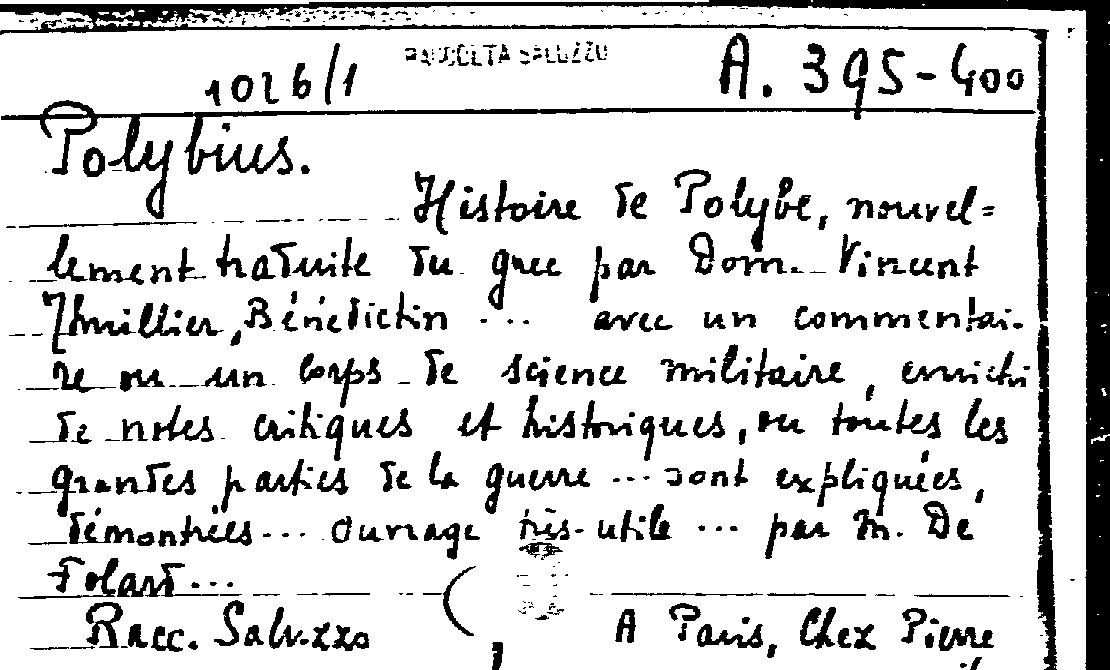 RACCOLTA SALUZZO
1026/1 A. 395-400
Polybius.
Histoire de Polybe, nouvel=
lement traduite du grec par Dom. Vincent
Thuillier, Bénédictin ... avec un commentai-
re ou un corps de science militaire, enrichi
de notes critiques et historiques, ou toutes les
grandes parties de la guerre ... sont expliquées,
démontrées ... Ouvrage très-utile ... par M. De
Folard ...
Racc. Saluzzo ( , A Paris, Chez Pierre